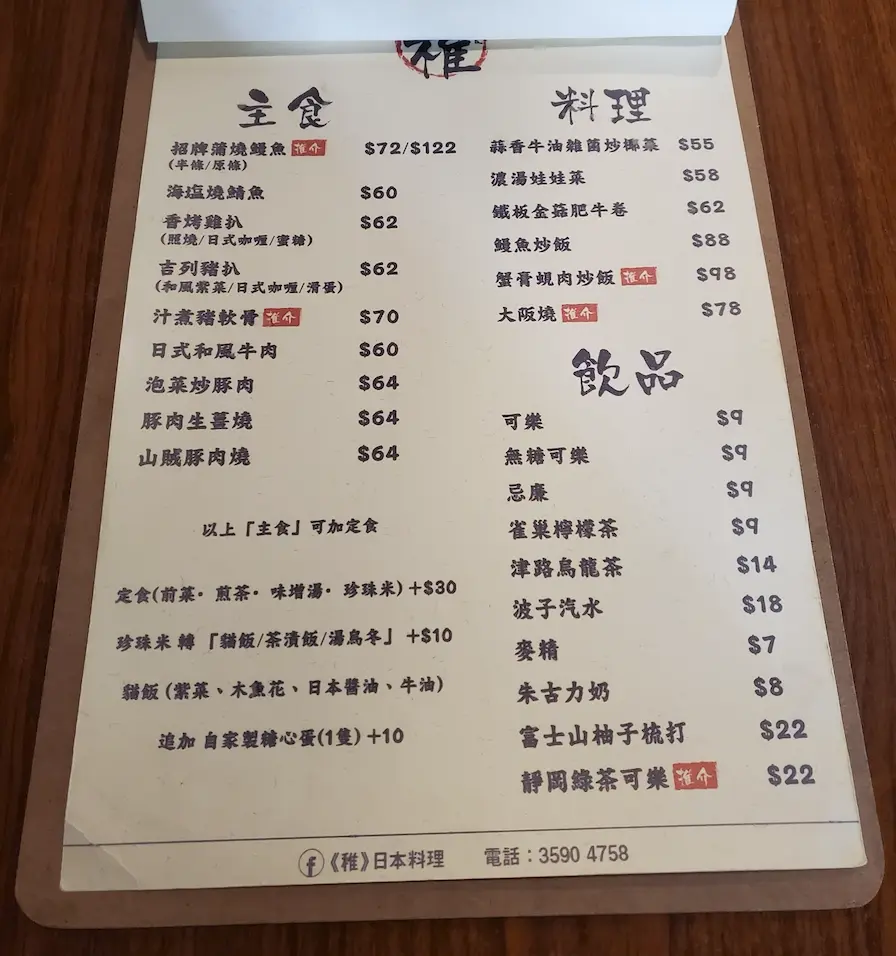 稚
主食
招牌蒲燒鰻魚 推介 $72/$122
(半條/原條)
海塩燒鯖魚 $60
香烤雞扒 $62
(照燒/日式咖喱/蜜糖)
吉列豬扒 $62
(和風紫菜/日式咖喱/滑蛋)
汁煮豬軟骨 推介 $70
日式和風牛肉 $60
泡菜炒豚肉 $64
豚肉生薑燒 $64
山賊豚肉燒 $64
以上「主食」可加定食
定食(前菜· 煎茶· 味增湯· 珍珠米) +$30
珍珠米 轉 「貓飯/茶漬飯/湯烏冬」 +$10
貓飯 (紫菜、木魚花、日本醬油、牛油)
追加 自家製糖心蛋(1隻) +10
料理
蒜香牛油雜菌炒椰菜 $55
濃湯娃娃菜 $58
鐵板金菇肥牛卷 $62
鰻魚炒飯 $88
蟹膏蜆肉炒飯 推介 $98
大阪燒 推介 $78
飲品
可樂 $9
無糖可樂 $9
忌廉 $9
雀巢檸檬茶 $9
津路烏龍茶 $14
波子汽水 $18
麥精 $7
朱古力奶 $8
富士山柚子梳打 $22
靜岡綠茶可樂 推介 $22
f《稚》日本料理 電話：3590 4758